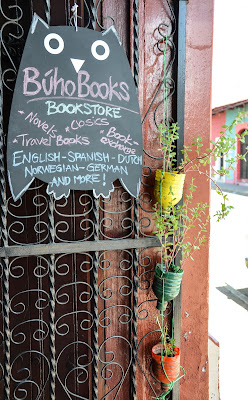 BúhoBooks
BOOKSTORE
- Novels * Clasics - Book-
- Travel Books exchange
ENGLISH - SPANISH - DUTCH
NORWEGIAN - GERMAN
AND MORE!